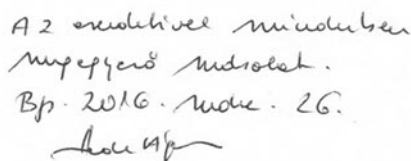 Az eredetivel mindenben
megegyező másolat.
Bp. 2016. 26.